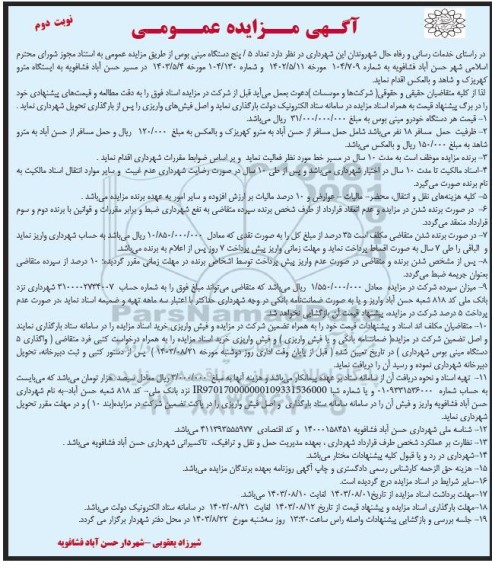 آگهی مـزایده عمـومـی
نوبت دوم
در راستای خدمات رسانی و رفاه حال شهروندان این شهرداری در نظر دارد تعداد ۵ / پنج دستگاه مینی بوس از طریق مزایده عمومی به استناد مجوز شورای محترم
اسلامی شهر حسن آباد فشافویه به شماره ۱۰۴/۷۰۹ مورخه ۱۴۰۲/۵/۱۱ و شماره ۱۰۴/۱۳۰ مورخه ۱۴۰۳/۵/۴ در مسیر حسن آباد فشافویه به ایستگاه مترو
کهریزک و شاهد و بالعکس اقدام نماید.
لذا از کلیه متقاضیان حقیقی و حقوقی( شرکت‌ها و موسسات )دعوت بعمل می‌آید قبل از شرکت در مزایده اسناد فوق را به دقت مطالعه و قیمت‌های پیشنهادی خود
را در برگ پیشنهاد قیمت به همراه اسناد مزایده در سامانه ستاد الکترونیک دولت بارگذاری نماید و اصل فیش‌های واریزی را پس از بارگذاری تحویل شهرداری نماید .
۱- قیمت هر دستگاه خودرو مینی بوس به مبلغ ۳۱/۰۰۰/۰۰۰/۰۰۰ ریال می‌باشد.
۲- ظرفیت حمل مسافر ۱۸ نفر می‌باشد شامل حمل مسافر از حسن آباد به مترو کهریزک و بالعکس به مبلغ ۱۲۰/۰۰۰ ریال و حمل مسافر از حسن آباد به مترو
شاهد به مبلغ ۱۵۰/۰۰۰ ریال و بالعکس می‌باشد.
۳- برنده مزایده موظف است به مدت ۱۰ سال در مسیر خط مورد نظر فعالیت نماید و بر اساس ضوابط مقررات شهرداری اقدام نماید .
۴- اسناد مالکیت تا مدت ۱۰ سال در اختیار شهرداری می‌باشد و پس از طی ۱۰ سال در صورت رضایت شهرداری عدم غیبت و سایر موارد انتقال اسناد مالکیت به
نام برنده صورت می‌گیرد.
۵- کلیه هزینه‌های نقل و انتقال، محضر- مالیات – عوارض و ۱۰ درصد مالیات بر ارزش افزوده و سایر امور به عهده برنده مزایده می‌باشد .
۶- در صورت برنده شدن در مزایده و عدم انعقاد قرارداد از طرف شخص برنده سپرده متقاضی به نفع شهرداری ضبط و برابر مقررات و قوانین با برنده دوم و سوم
قرارداد منعقد می‌گردد.
۷- در صورت برنده شدن متقاضی مکلف است ۳۵ درصد از مبلغ کل را به صورت نقدی که معادل ۱۰/۸۵۰/۰۰۰/۰۰۰ ریال می‌باشد به حساب شهرداری واریز نماید
و الباقی را طی ۷ سال به صورت اقساط پرداخت نماید و مهلت زمانی واریز پیش پرداخت ۷ روز پس از اعلام به برنده می‌باشد.
۸- پس از مشخص شدن برنده و متقاضی در صورت عدم واریز پیش پرداخت توسط اشخاص برنده در مهلت زمانی مقرر گردیده؛ ۱۰ درصد از سپرده متقاضی
بعنوان جریمه ضبط می‌گردد.
۹- میزان سپرده شرکت در مزایده معادل ۱/۵۵۰/۰۰۰/۰۰۰ ریال می‌باشد که متقاضی می‌تواند مبلغ فوق را به شماره حساب ۳۱۰۰۰۰۲۷۳۴۰۰۷ شهرداری نزد
بانک ملی کد ۸۱۸ شعبه حسن آباد واریز و یا به صورت ضمانتنامه بانکی در وجه شهرداری حداکثر با اعتبار سه ماهه تهیه و ضمیمه اسناد نماید در صورت عدم
پرداخت ۵ درصد شرکت در مزایده، پیشنهاد قیمت آن بازگشایی نخواهد شد.
۱۰- متقاضیان مکلف اند اسناد و پیشنهادات قیمت خود را به همراه تضمین شرکت در مزایده و فیش واریزی خرید اسناد مزایده را در سامانه ستاد بارگذاری نمایند
و اصل تضمین شرکت در مزایده( ضمانتنامه بانکی و یا فیش واریزی ) و فیش واریزی خرید اسناد مزایده را به همراه درخواست کتبی فرد متقاضی ( واگذاری ۵
دستگاه مینی بوس شهرداری ) در تاریخ تعیین شده ( قبل از پایان وقت اداری روز دوشنبه مورخه ۱۴۰۳/۰۸/۲۱ ) پس از دستور کتبی و ثبت دبیرخانه، تحویل
دبیرخانه شهرداری نموده و رسید آن را دریافت نماید.
۱۱- تهیه اسناد و نحوه دریافت آن از سامانه ستاد بر عهده پیمانکار می‌باشد و هزینه آنها به مبلغ ۳/۰۰۰/۰۰۰ ریال معادل سیصد هزار تومان می‌باشد که می‌بایست
به حساب شماره ۰۱۰۹۳۳۱۵۳۶۰۰۰ و یا شماره شبا IR970170000000109331536000 نزد بانک ملی- کد ۸۱۸ شعبه حسن آباد-به نام شهرداری
حسن آباد فشافویه واریز و فیش آن را در سامانه ستاد بارگذاری و اصل فیش واریزی را در پاکت تضمین شرکت در مزایده(بند ۱۰ ) و در مهلت مقرر تحویل
شهرداری نماید.
۱۲- شناسه ملی شهرداری حسن آباد فشافویه ۱۴۰۰۰۱۵۸۴۵۱ و کد اقتصادی ۴۱۱۳۹۳۵۵۵۹۷۷ می‌باشد.
۱۳- نظارت بر عملکرد شخص طرف قرارداد شهرداری ، بعهده مدیریت حمل و نقل و ترافیک، تاکسیرانی شهرداری حسن آباد فشافویه می‌باشد .
۱۴-شهرداری در رد و یا قبول کلیه پیشنهادات مختار می‌باشد.
۱۵- هزینه حق الزحمه کارشناس رسمی دادگستری و چاپ آگهی روزنامه بعهده برندگان مزایده می‌باشد.
۱۶-سایر شرایط در اسناد مزایده درج گردیده است.
۱۷-مهلت برداشت اسناد مزایده از تاریخ۱۴۰۳/۰۸/۰۱ لغایت ۱۴۰۳/۰۸/۱۰ می‌باشد.
۱۸-مهلت بارگذاری اسناد مزایده و پیشنهاد قیمت از تاریخ ۱۴۰۳/۰۸/۱۲ لغایت ۱۴۰۳/۰۸/۲۱ در سامانه ستاد الکترونیک دولت می‌باشد.
۱۹- جلسه بررسی و بازگشایی پیشنهادات واصله راس ساعت۱۳:۳۰ روز سه‌شنبه مورخ ۱۴۰۳/۸/۲۲ در محل دفتر شهردار برگزار می گردد.
شیرزاد یعقوبی –شهردار حسن آباد فشافویه